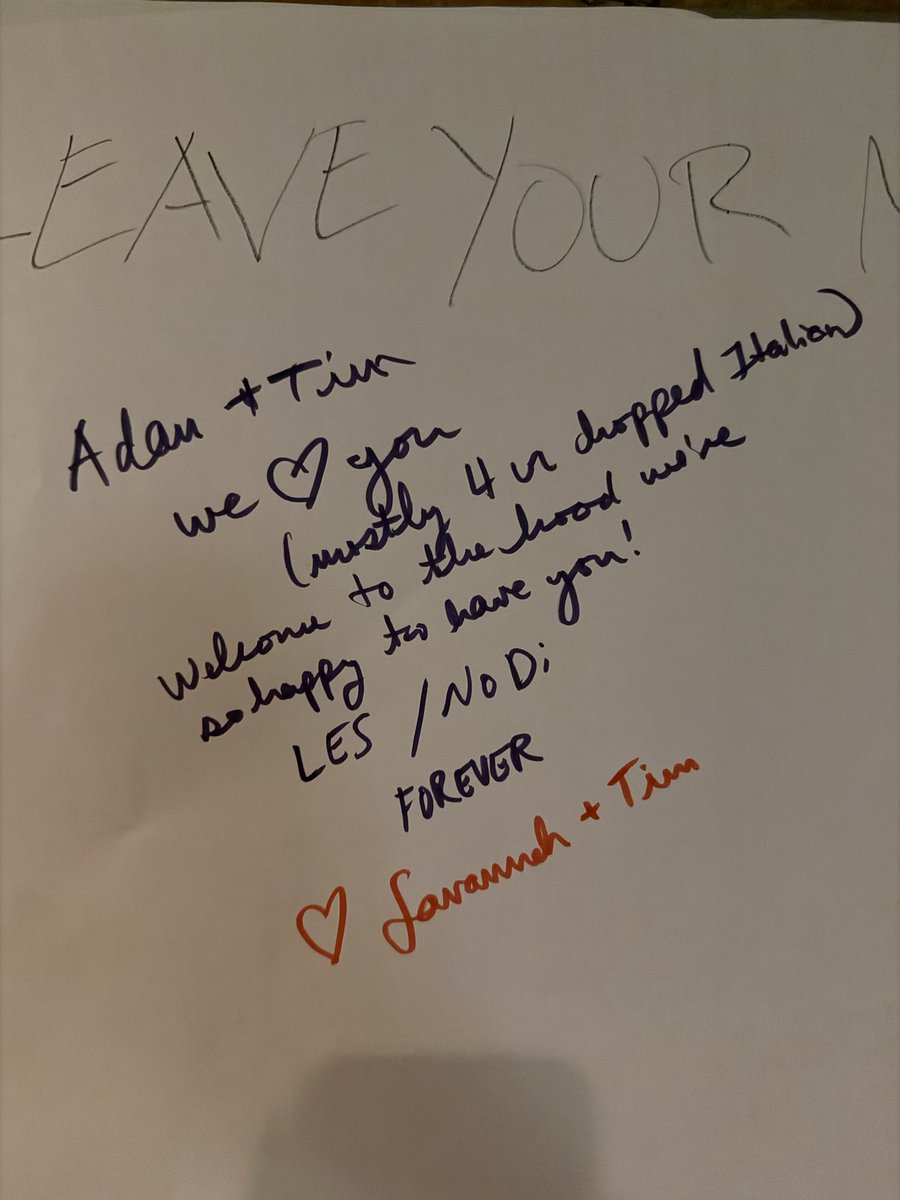 LEAVE YOUR
Adam + Tim
we ♡ you
(mostly 4 ur chopped Italian)
Welcome to the hood we're
so happy to have you!
LES / NoDi
FOREVER
♡ Savannah + Tim